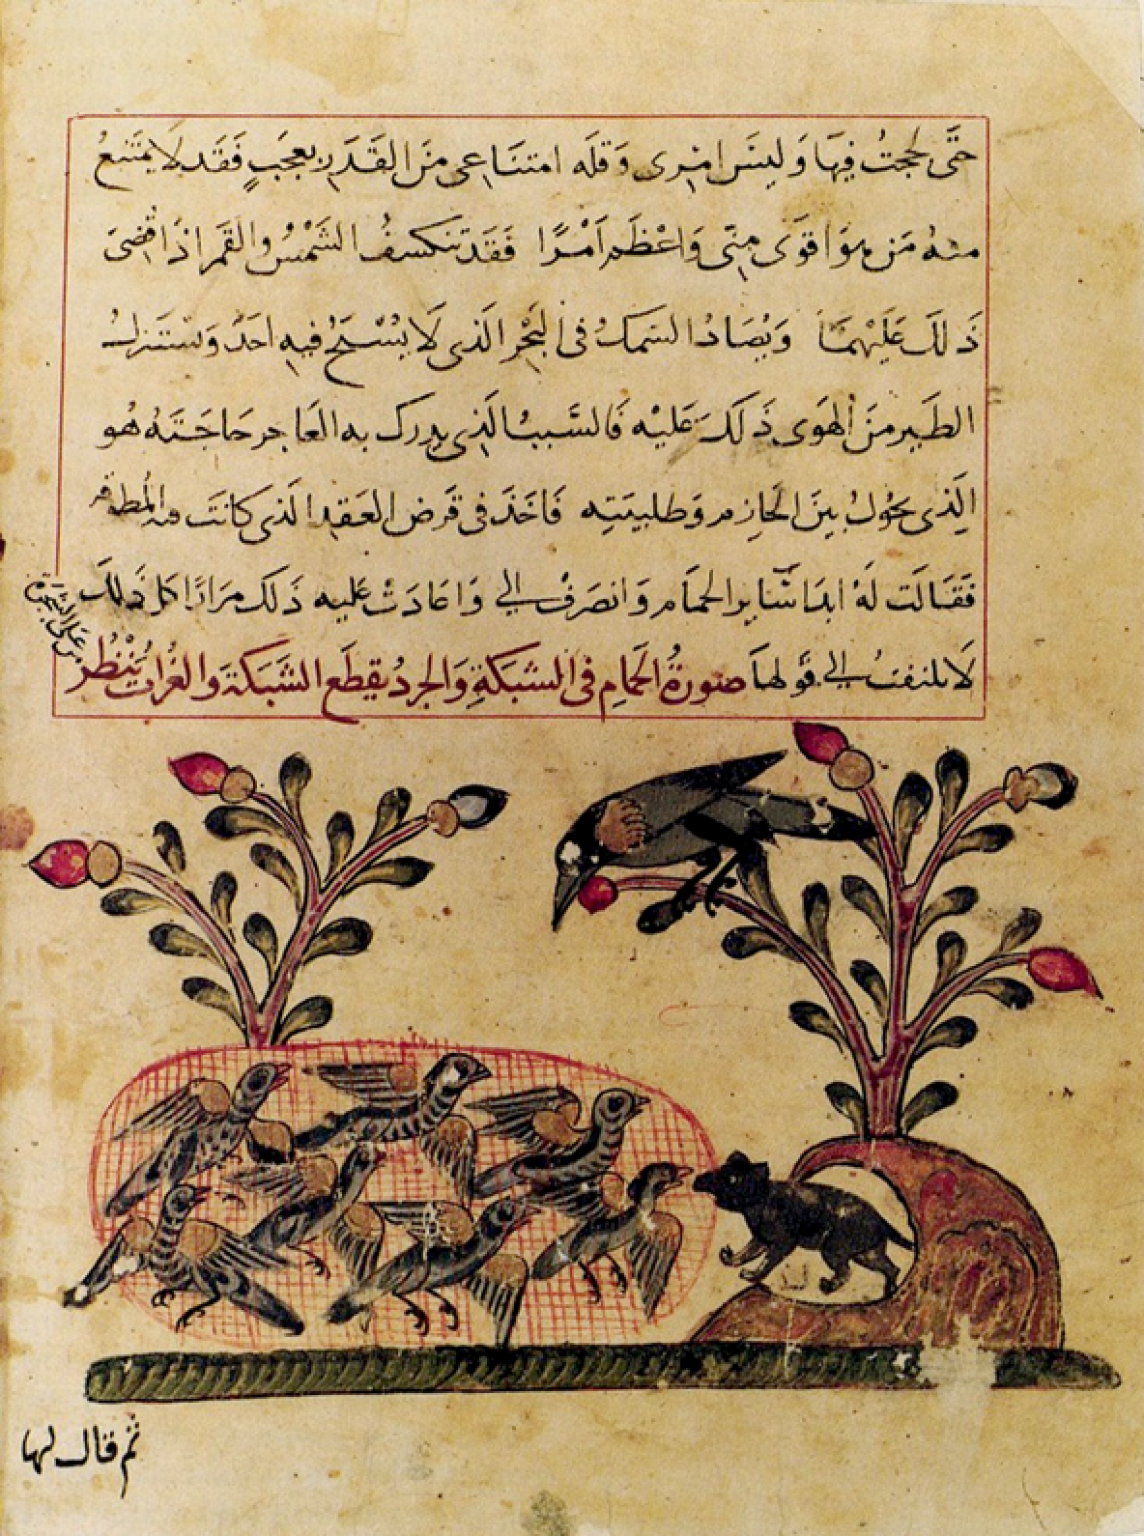 حتَّى لججتُ فِيهَا وَليسَ امْرى وَقلَه امتنَاعى منَ القَدَرِ بعجَبٍ فَقَد لَا يمتَنعُ
منهُ مَن هوَ اقوَى مِنّى وَاعْظَم اَمْرًا فَقَد تنكسفُ الشَمْسُ والقمَر اذَا قُضىَ
ذَلكَ عَلَيْهمَا وَيُصَادُ السَمكُ فى البَحْرِ الَذى لَا يُسْبَحُ فيهِ احَدٌ وَيستَنزلُ
الطَير منَ الهَوى ذَلكَ عَليْه فَالسَّببُ الَذِى يدرك به العَاجر حَاجَتَهُ هُو
الَذِى يحُولُ بينَ الحَازِم وَطلبَتِه فَاخَذَ فى قَرض العَقد الَذى كانَت فيه المُطوقه
فَقَالَت لَهُ ابدَا بسَاير الحمَام وَانصَرفْ الى وَاعَادَتْ عَليه ذَلكَ مرَارًا كل ذَلكَ
لَا يلتفتُ الى قَولهَا صُورةُ الحَمَامِ فى الشبَكَةِ وَالجردُ يقطَع الشَبَكَة وَالغُرابُ يَنْظُر
من عَلى الشجَرَة
ثم قال لها